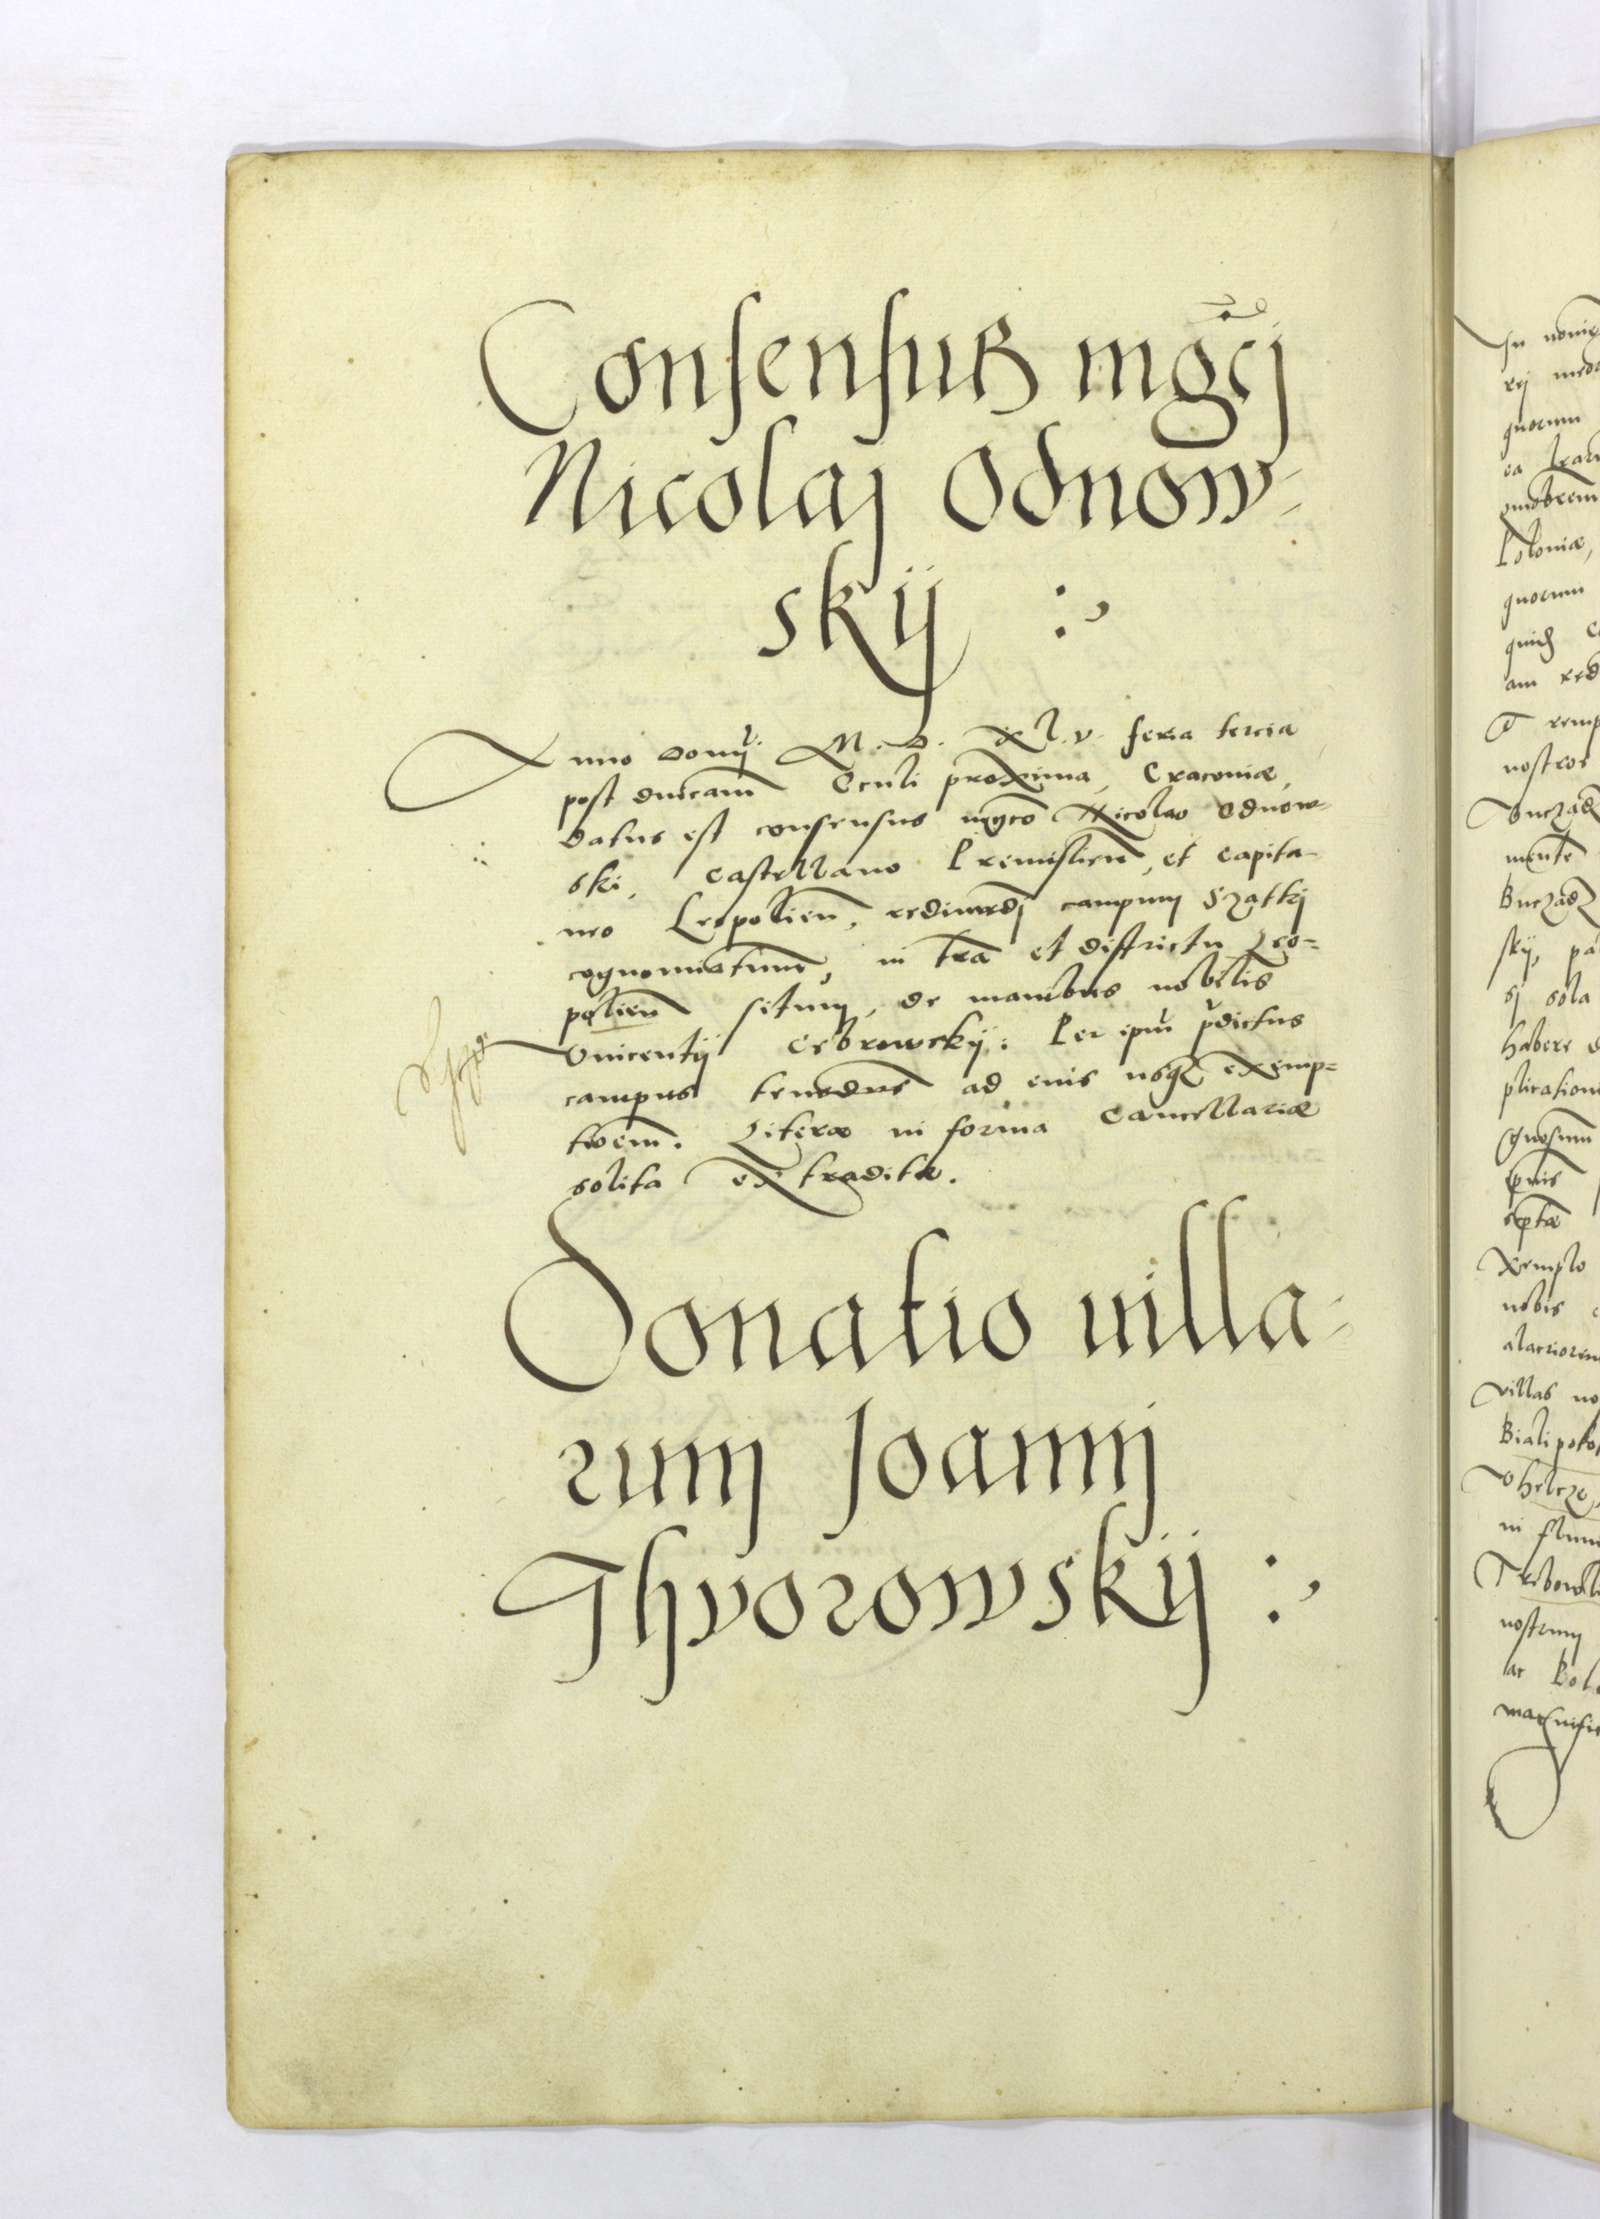 Consensus mgcj
Nicolaj Odnow-
skij :,
Anno Domij. M. D. xl. v. feria tercia
post dnicam Oculi proxima, Cracoviæ,
datus est consensus mgco Nicolao Odnow-
ski, Castellano Premislien, et Capita-
neo Leopolien, redimendj campum Szatkj
cognominatum, in tra et districtu Leo-
polien situm, de manibus nobilis
Vincentij Cebrowskij: Per ipm pdictus
campus tenedus ad euis usq exemp-
tioem. Literæ in forma Cancellariæ
solita extraditæ.
Donatio villa-
rum Joannj
Thvorowskij :,
In nomi
rej
quorum
ea
quobrem
Poloniæ,
quorum
quid
am red
T remp
nostros
Buczacz
mente
Buczacz
skij, pa
sj sola
habere
plication
exemplo
nobis
alacriorem
villas no
Bialipoto
in flum
Trebowl
nostrum
ac
magnific